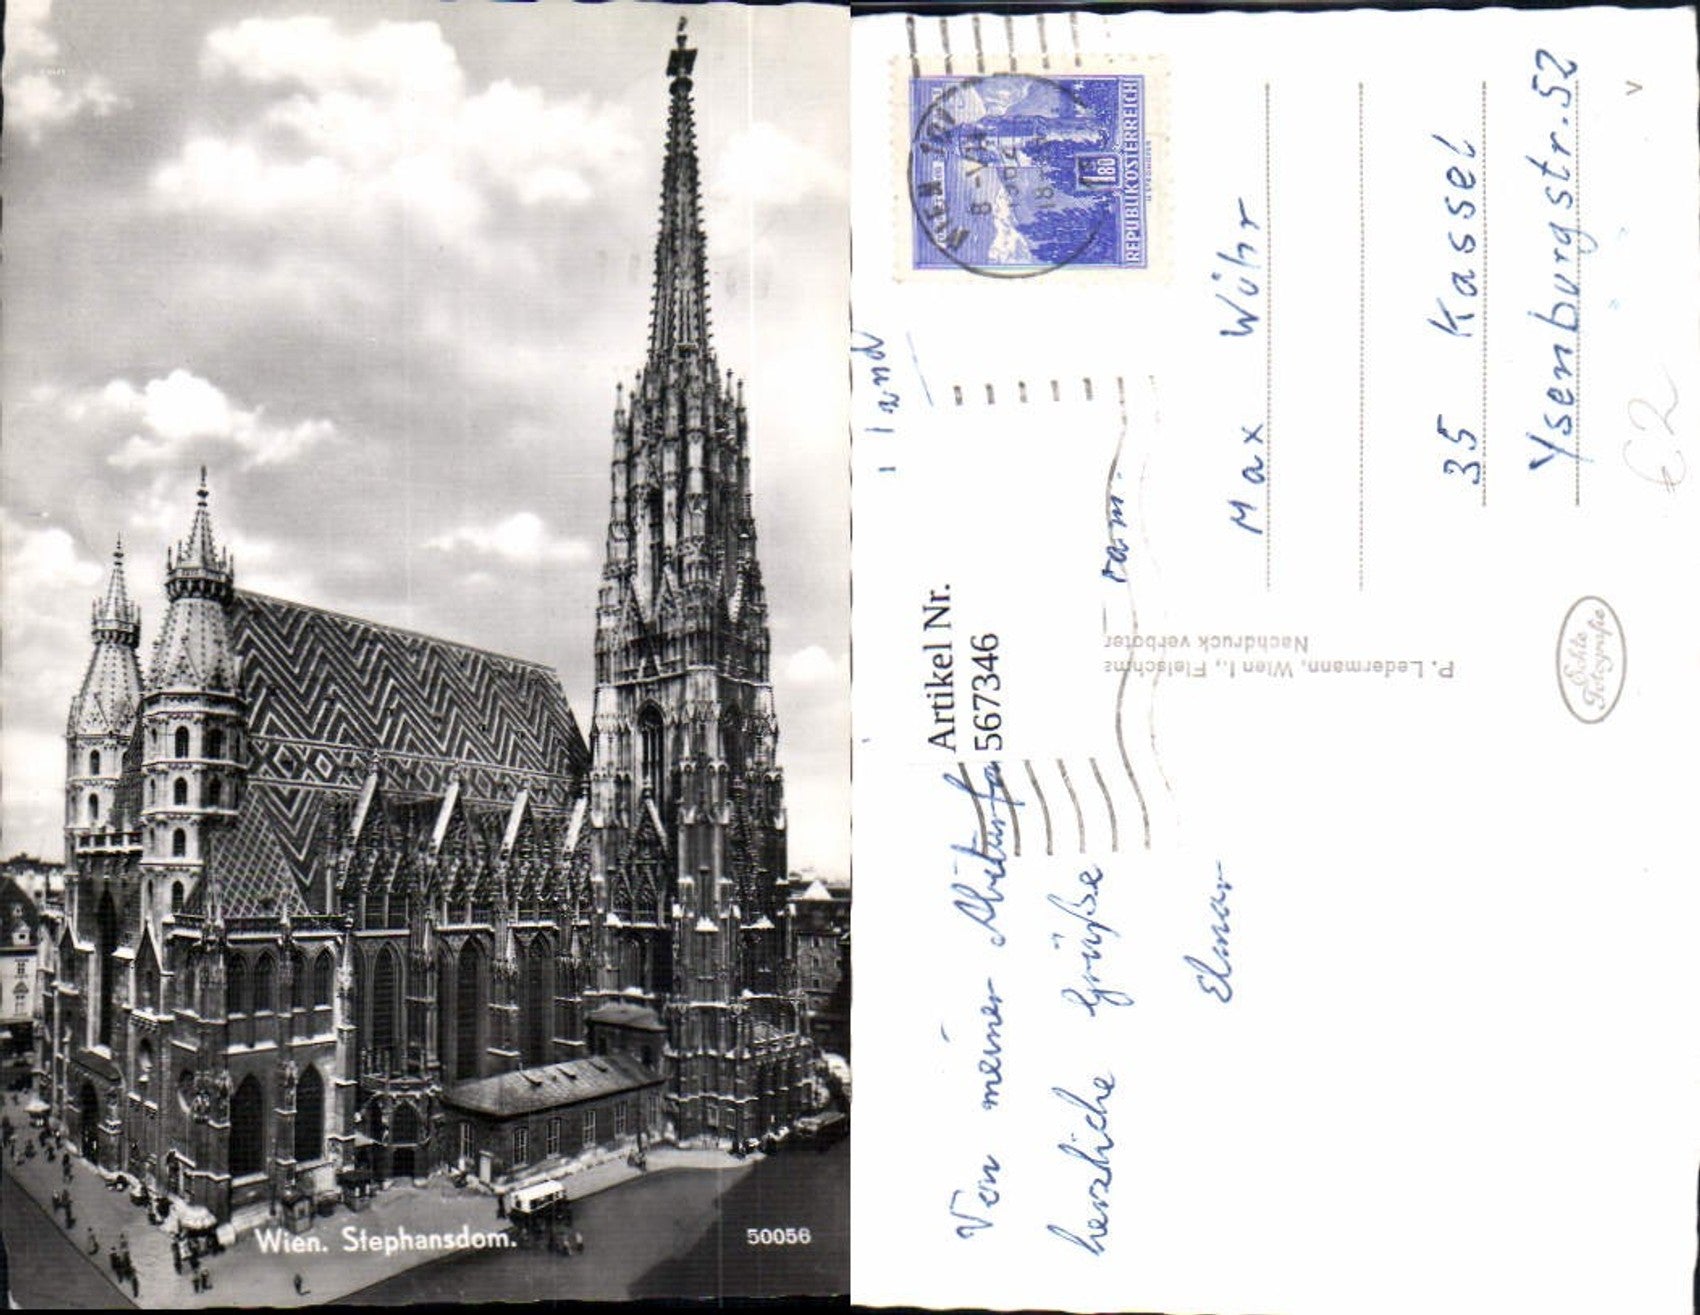 Wien. Stephansdom.
50056
REPUBLIK ÖSTERREICH
1.80
WIEN 101
8.-VII
18
Max Wühr
35 Kassel
Ysenburgstr. 52
€ 2
Artikel Nr.
567346
P. Ledermann, Wien I., Fleischma
Nachdruck verboten
Echte
Fotografie
Von meiner
herzliche Grüße
Elmar